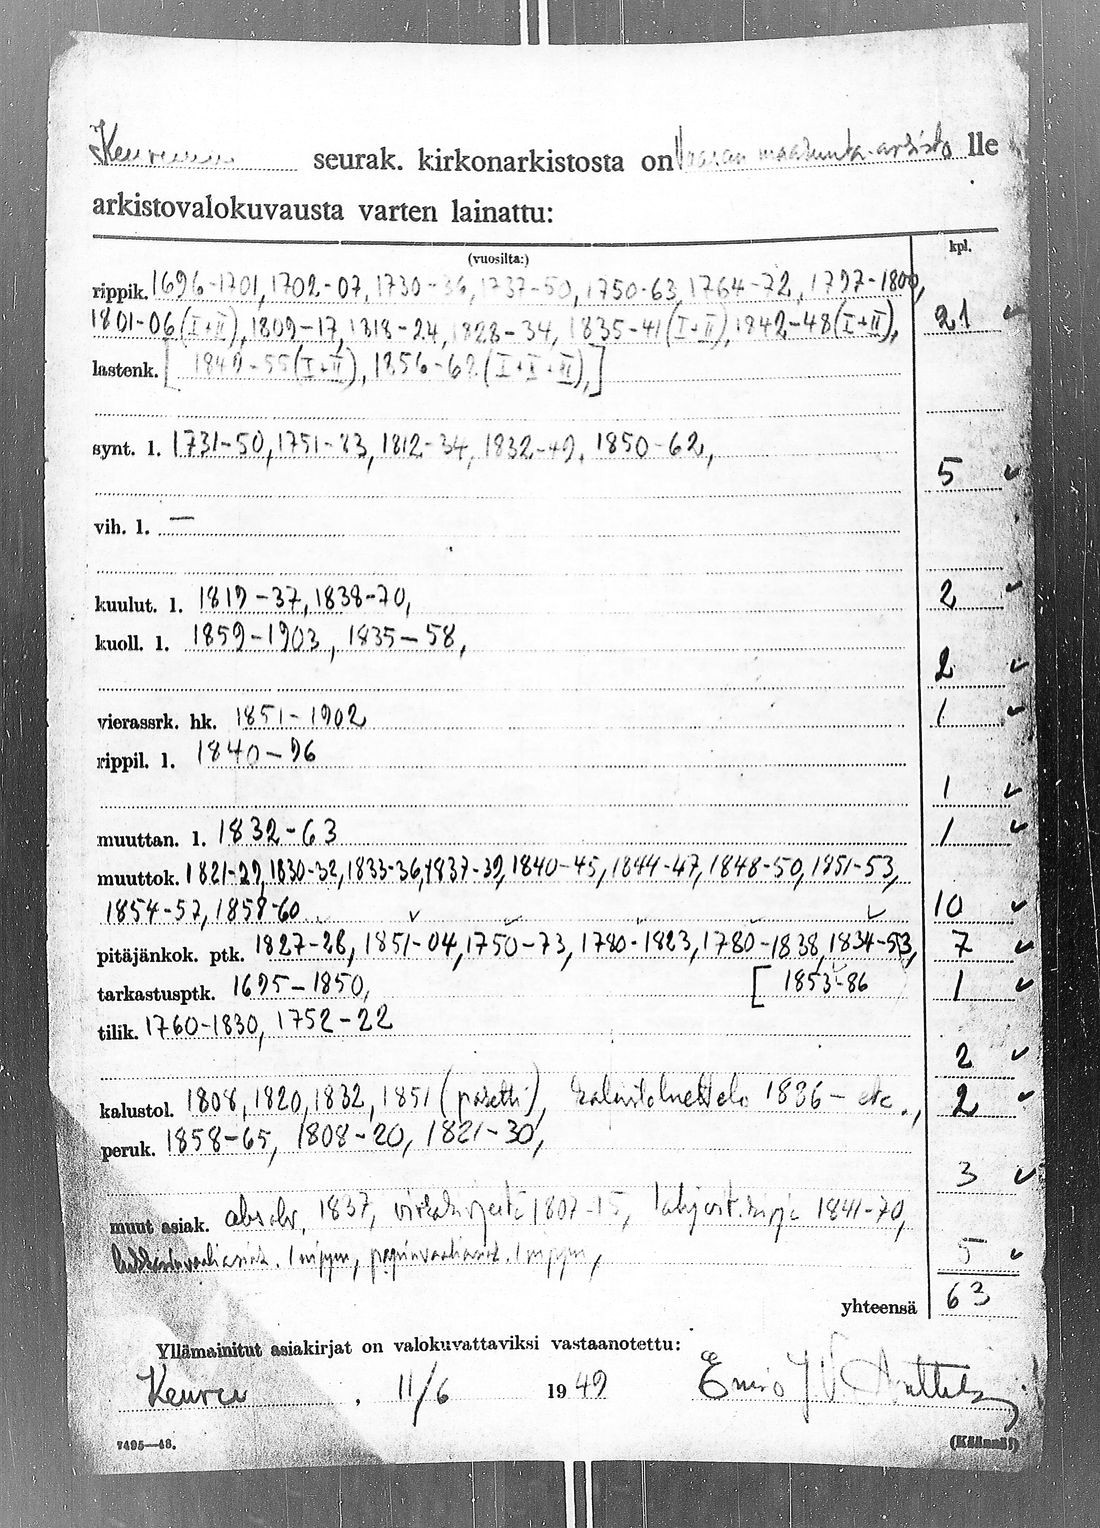 Keuruun seurak. kirkonarkistosta on Vaasan maakunta-arkisto lle
arkistovalokuvausta varten lainattu:
(vuosilta:) kpl.
rippik. 1696-1701, 1702-07, 1730-36, 1737-50, 1750-63, 1764-72, 1797-1800,
1801-06 (I+II), 1809-17, 1818-24, 1828-34, 1835-41 (I+II), 1842-48 (I+II), 21 ✓
lastenk. [1849-55 (I+II), 1856-62 (I+II+III),]
synt. l. 1731-50, 1751-83, 1812-34, 1832-49, 1850-62,
5 ✓
vih. l. —
kuulut. l. 1819-37, 1838-70, 2 ✓
kuoll. l. 1859-1903, 1835-58,
2 ✓
vierassrk. hk. 1851-1902 1 ✓
rippil. l. 1840-96
1 ✓
muuttan. l. 1832-63 1 ✓
muuttok. 1821-29, 1830-32, 1833-36, 1837-39, 1840-45, 1844-47, 1848-50, 1851-53,
1854-57, 1858-60 10 ✓
pitäjänkok. ptk. 1827-28, 1851-04, 1750-73, 1780-1823, 1780-1838, 1834-53, 7 ✓
tarkastusptk. 1695-1850, [1853-86 1 ✓
tilik. 1760-1830, 1752-22
2 ✓
kalustol. 1808, 1820, 1832, 1851 (pöketti), kalustoluettelo 1836- etc., 2 ✓
peruk. 1858-65, 1808-20, 1821-30,
3 ✓
muut asiak. 1837, virkakirjeitä 1807-15, lahjoit. kirja 1841-70,
1 nippu, 1 nippu, 5 ✓
yhteensä 63
Yllämainitut asiakirjat on valokuvattaviksi vastaanotettu:
Keuruu. 11/6 1949
7495—48. (Käännä!)